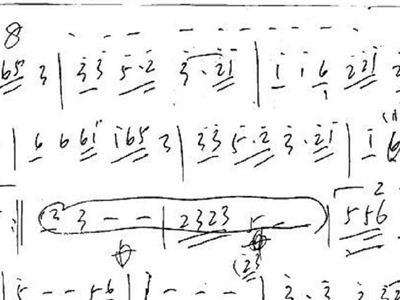 8
65 3 | 3 3 5 · 2 3 · 2 1 | 1 1 6 2 2 1
| 6 6 6 1 1 6 5 3 | 3 3 5 · 2 3 · 2 1 | 1
:|| 3 3 – – | 2 3 2 3 5 – | 5 5 6 2
(23
| 5 – – 5 6 | 1 – – – | 3 · 3